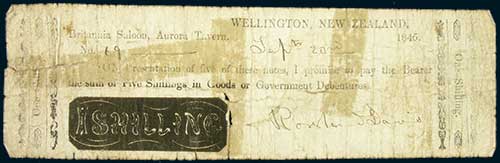 WELLINGTON, NEW ZEALAND,
Britannia Saloon, Aurora Tavern. 1845.
No. 69 Sept 20
ON Presentation of five of these notes, I promise to pay the Bearer
the sum of Five Shillings in Goods or Government Debentures.
1 SHILLING
One Shilling.